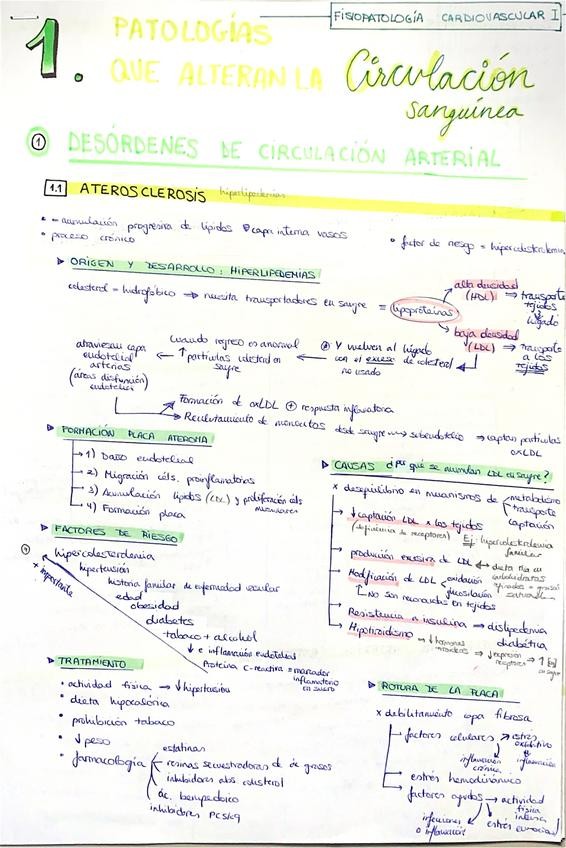 FISIOPATOLOGÍA CARDIOVASCULAR I
1.
PATOLOGÍAS
QUE ALTERAN LA Circulación
sanguínea
① DESÓRDENES DE CIRCULACIÓN ARTERIAL
1.1 ATEROSCLEROSIS hiperlipidemias
= acumulación progresiva de lípidos capa interna vasos
• proceso crónico
• factor de riesgo = hipercolesterolemia
▶ ORIGEN Y DESARROLLO: HIPERLIPEDEMIAS
colesterol = hidrofóbico → necesita transportadores en sangre = lipoproteínas
alta densidad (HDL) ⇒ transporte tejidos hígado
baja densidad (LDL) → transporte a los tejidos
④ Y vuelven al hígado con el exceso de colesterol no usado
← cuando regreso es anormal ↑ partículas colesterol en sangre
← atraviesan capa endotelial arterias (áreas disfunción endotelial)
→ Formación de oxLDL ⊕ respuesta inflamatoria
→ Reclutamiento de monocitos desde sangre → subendotelio → captan partículas oxLDL
▶ FORMACIÓN PLACA ATEROMA
→ 1) Daño endotelial
→ 2) Migración céls. proinflamatorias
→ 3) Acumulación lípidos (LDL) y proliferación céls musculares
→ 4) Formación placa
▶ FACTORES DE RIESGO
hipercolesterolemia
hipertensión
historia familiar de enfermedad vascular
edad
obesidad
diabetes
tabaco + alcohol
↓ e inflamación endotelial
Proteína C-reactiva = marcador inflamatorio en suero
+ importante
▶ TRATAMIENTO
• actividad física → ↓ hipertensión
• dieta hipocalórica
• prohibición tabaco
• ↓ peso
• farmacología
estatinas
resinas secuestradoras de ác grasos
inhibidores abs colesterol
ác. bempedoico
inhibidores PCSK9
▶ CAUSAS ¿Por qué se acumulan LDL en sangre?
x desequilibrio en mecanismos de metabolismo
transporte
captación
→ ↓ captación LDL x los tejidos
(deficiencia de receptores) Ej: hipercolesterolemia familiar
→ producción excesiva de LDL ↔ dieta rica en carbohidratos
→ Modificación de LDL oxidación
glucosilación
↳ No son reconocidas en tejidos
→ Resistencia a insulina → dislipedemia diabética
→ Hipotiroidismo → ↓ hormonas tiroideas → ↓ expresión receptores → ↑
▶ ROTURA DE LA PLACA
x debilitamiento capa fibrosa
→ factores celulares estrés oxidativo
inflamación
inflamación crónica
→ estrés hemodinámico
→ factores agudos → actividad física intensa
infecciones o inflamación
estrés emocional